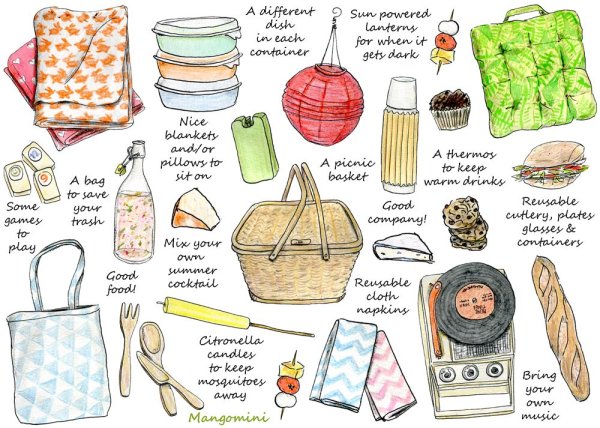 A different
dish
in each
container
Sun powered
lanterns
for when it
gets dark
Nice
blankets
and/or
pillows to
sit on
A picnic
basket
A thermos
to keep
warm drinks
Some
games
to
play
A bag
to save
your
trash
Good
company!
Reusable
cutlery, plates
glasses &
containers
Mix your
own
summer
cocktail
Good
food!
Reusable
cloth
napkins
Citronella
candles
to keep
mosquitoes
away
Bring
your
own
music
Mangomini